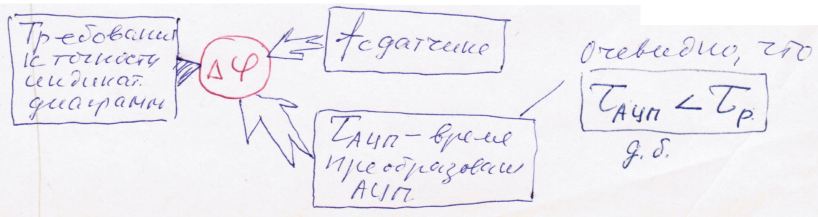 Требования
к точности
индикат.
диаграмм
Δφ
f с датчике
τАЦП – время
преобразован
АЦП.
очевидно, что
τАЦП < τр.
д. б.